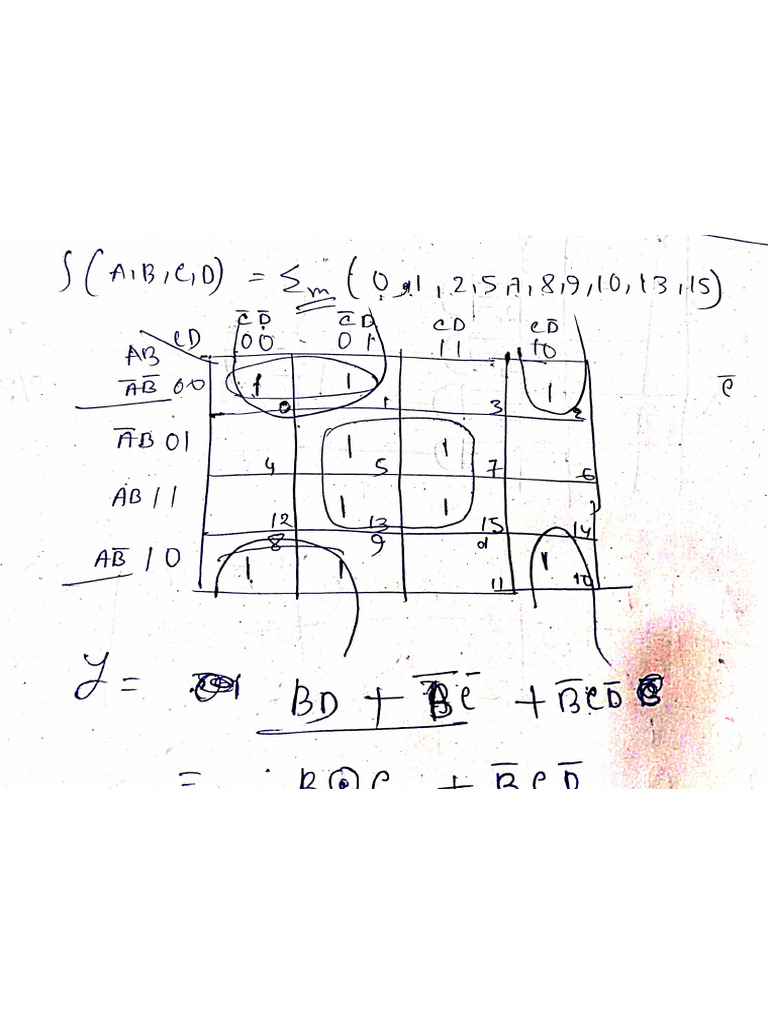 S(A,B,C,D) = Σm (0,1,2,5,7,8,9,10,13,15)
C̅D̅ C̅D CD CD̅
AB CD 00 01 11 10
A̅B̅ 00 1 0 1 1 3 1 2
C̅
A̅B 01 4 1 5 1 7 6
AB 11 12 1 13 1 15 14
AB̅ 10 8 1 9 1 11 1 10
Y = BD + B̅C̅ + B̅CD̅
= B⊙C + B̅CD̅